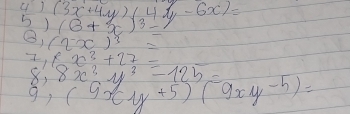 4) (3x+4y)(4y-6x)=
5) (6+x)³=
6, (2x)³ =
7, x³+27=
8, 8x³y³-125=
9, (9xy+5)(9xy-5)=